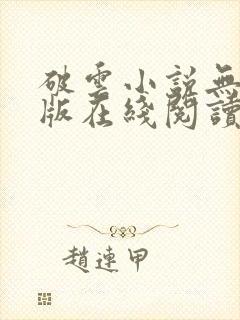 破雲小說無
版在綫閱讀
趙連甲